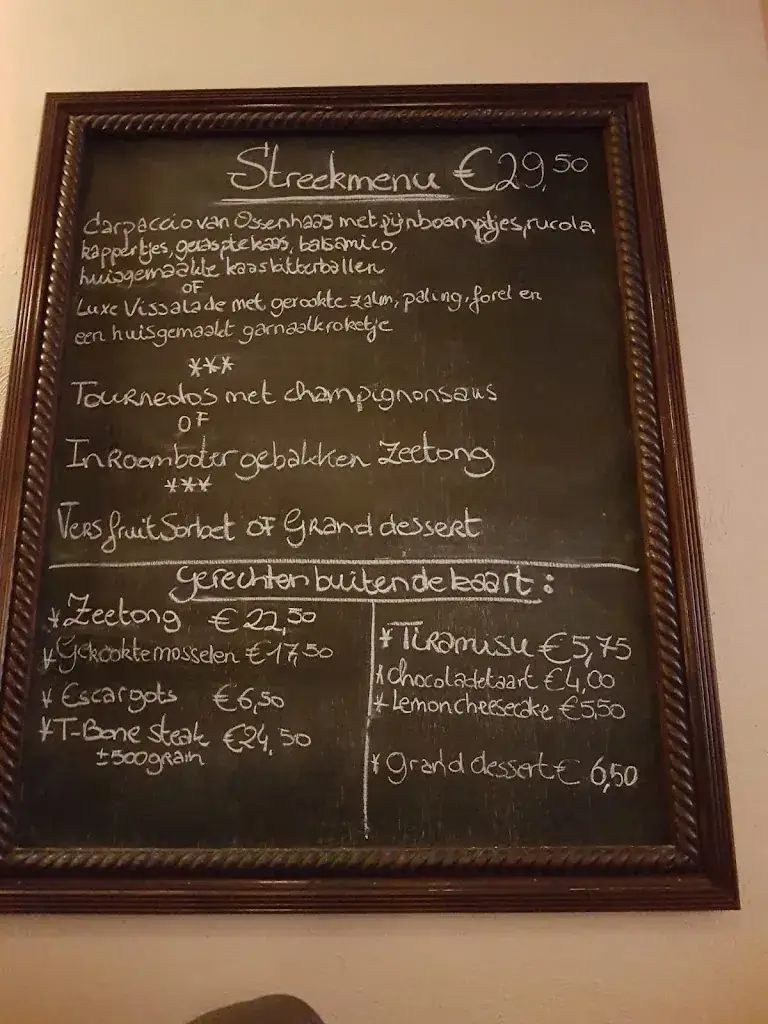 Streekmenu €29,50
Carpaccio van Ossenhaas met pijnboompitjes, rucola,
kappertjes, geraspte kaas, balsamico,
huisgemaakte kaasbitterballen
OF
Luxe Vissalade met gerookte zalm, paling, forel en
een huisgemaakt garnaalkroketje
***
Tournedos met champignonsaus
OF
In Roomboter gebakken Zeetong
***
Vers fruit Sorbet OF Grand dessert
Gerechten buiten de kaart:
* Zeetong €22,50
* Gekookte mosselen €17,50
* Escargots €6,50
* T-Bone steak €24,50
±500gram
* Tiramisu €5,75
* chocoladetaart €4,00
* Lemoncheesecake €5,50
* Grand dessert € 6,50